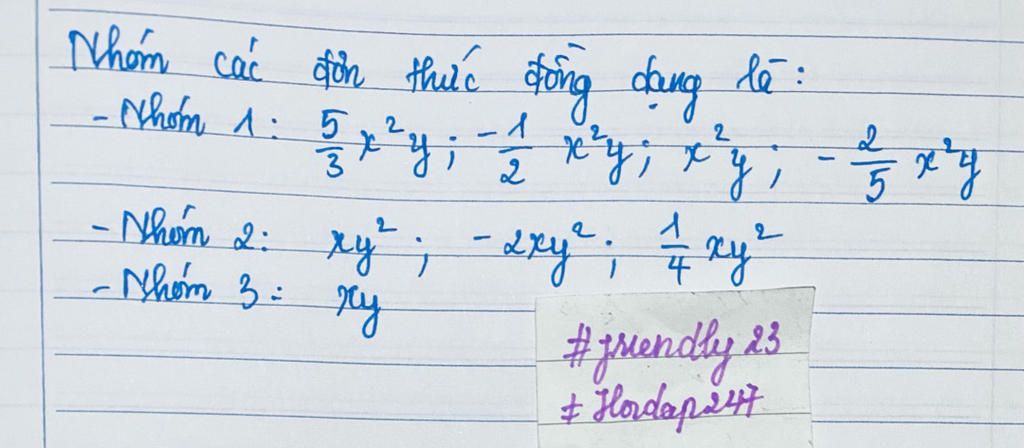 Nhóm các đơn thức đồng dạng là:
- Nhóm 1: 5/3 x²y; -1/2 x²y; x²y; -2/5 x²y
- Nhóm 2: xy²; -2xy²; 1/4 xy²
- Nhóm 3: xy
#friendly23
#Hoidap247